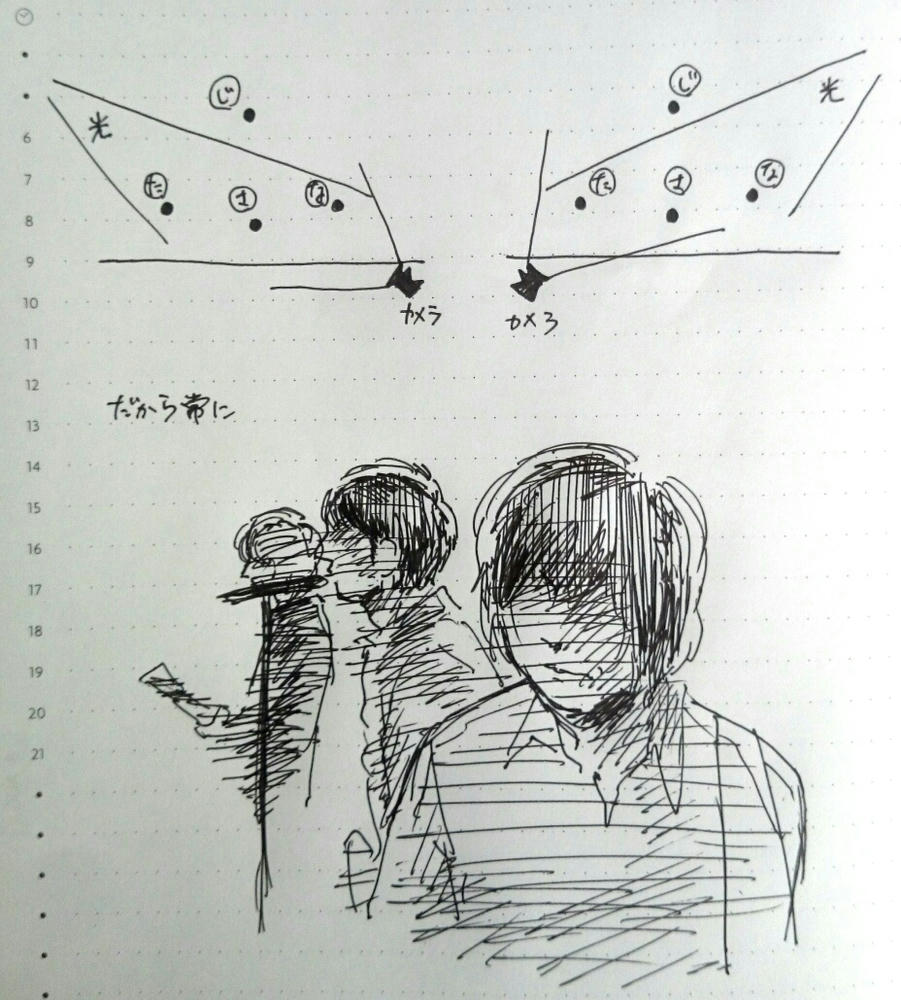 じ
じ
光
光
6
7
た
さ
な
た
さ
な
8
9
10
カメラ
カメラ
11
12
だから常に
13
14
15
16
17
18
19
20
21